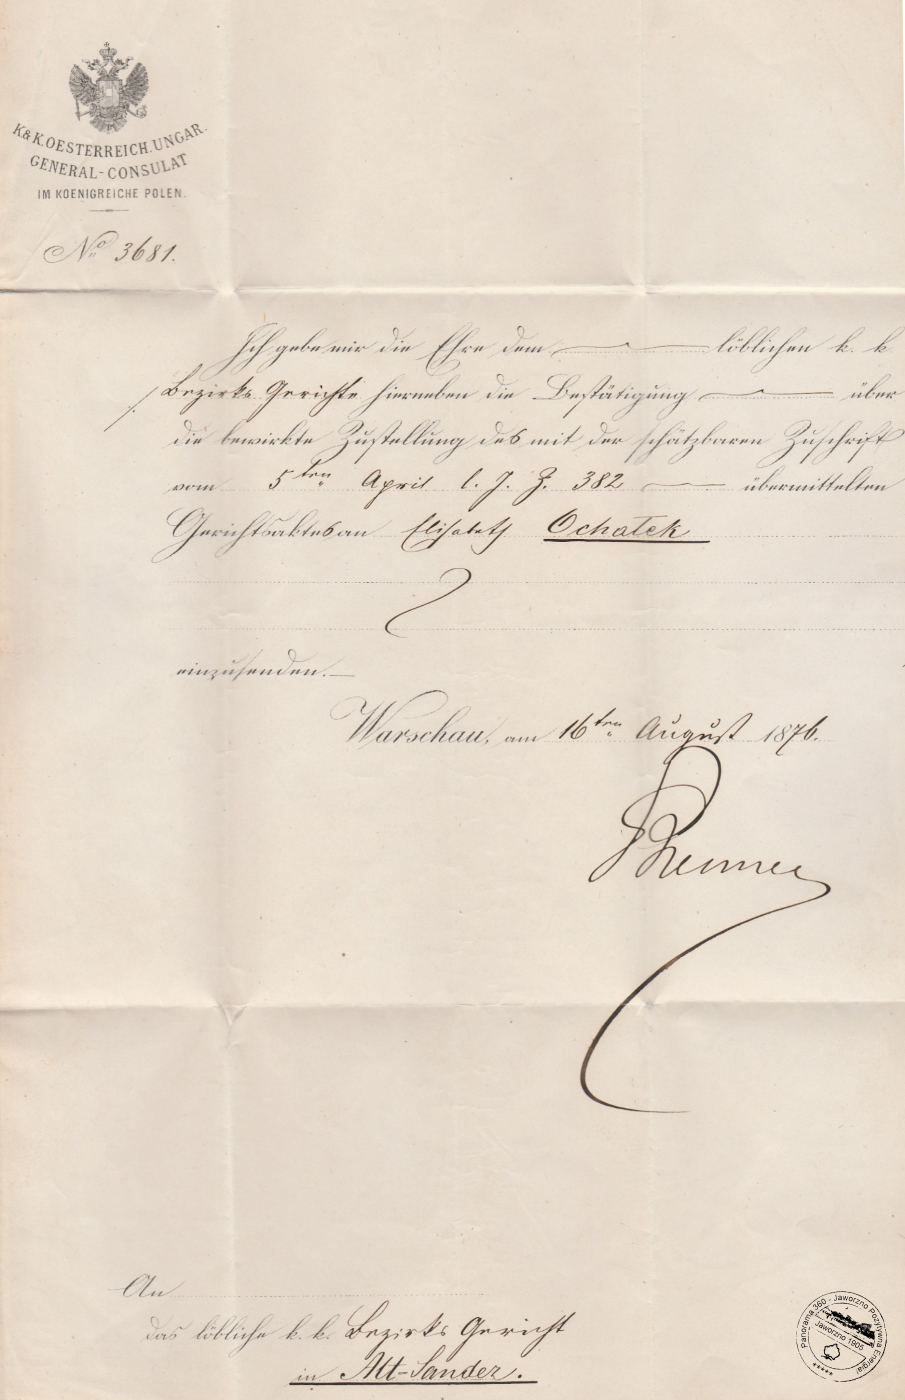 K & K. OESTERREICH. UNGAR.
GENERAL-CONSULAT
IM KOENIGREICHE POLEN.
No 3681.
Ich gebe mir die Ehre dem löblichen k. k
Bezirks Gerichte hierneben die Bestätigung über
die bewirkte Zustellung des mit der schätzbaren Zuschrift
vom 5ten April l. J. Z. 382 übermittelten
Gerichtsaktes an Elisabeth Ochatek
einzusenden.
Warschau, am 16ten August 1876.
An
das löbliche k. k. Bezirks Gericht
in Alt-Sandez.
Panorama 360 - Jaworzno Pozytywna Energia!
Jaworzno 1905